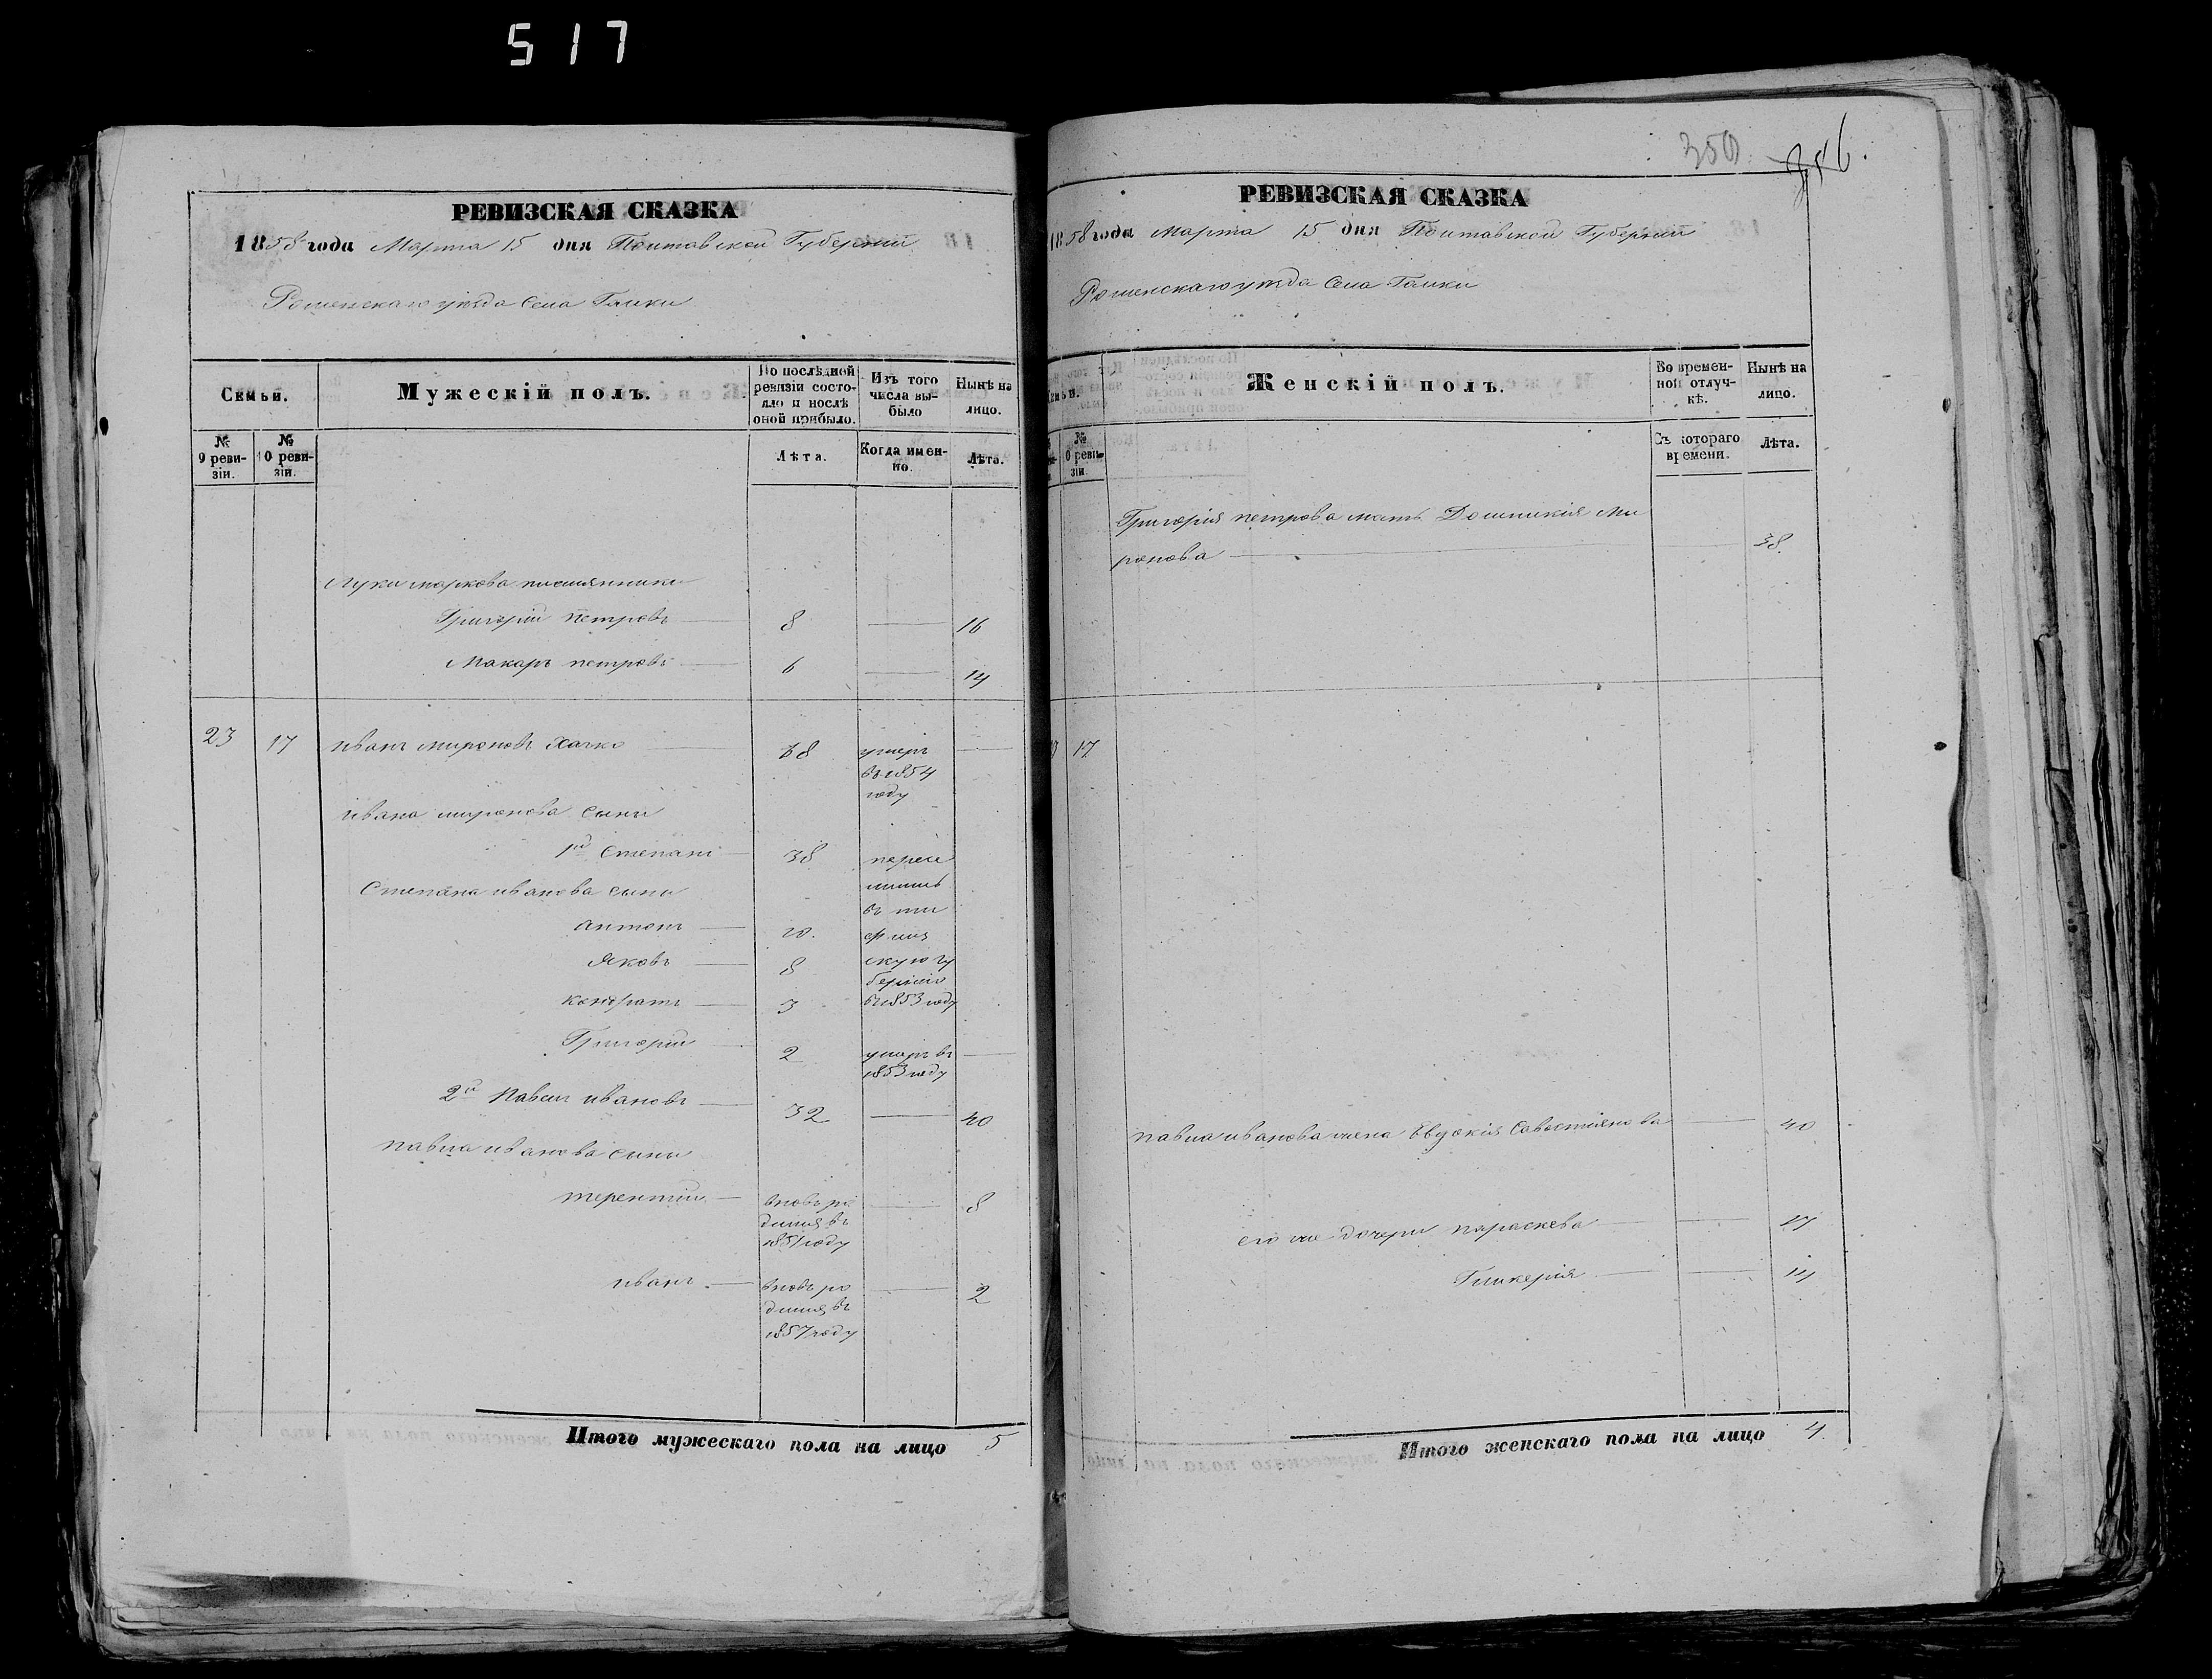 517
РЕВИЗСКАЯ СКАЗКА
1858 года Марта 15 дня Полтавской Губернии
Роменскаго уезда Села Галки
Семьи.
Мужескій полъ.
По послѣдней ревизіи состояло и послѣ оной прибыло.
Изъ того числа выбыло
Нынѣ на лицо.
№ 9 ревизіи.
№ 10 ревизіи.
Лѣта.
Когда именно.
Лѣта.
Луки Маркова племянники
Григорій Петровъ 8 16
Макаръ Петровъ 6 14
23 17 Иванъ Мироновъ 68 умеръ
въ 1854
году
Ивана Миронова сыны
1й Степанъ 38 пересе
Степана Иванова сыны
въ
Антонъ 10.
Яковъ 8 скую гу
бернію
Кондратъ 3 въ 1853 году
Григорій 2 умеръ въ
1853 году
2й Павелъ Ивановъ 32 40
Павла Иванова сыны
Терентій вновь ро 8
дился въ
1851 году
Иванъ вновь ро 2
дился въ
1857 году
Итого мужескаго пола на лицо 5
350
РЕВИЗСКАЯ СКАЗКА
1858 года Марта 15 дня Полтавской Губерніи
Роменскаго уезда Села Галки
Женскій полъ.
Во временной отлучкѣ.
Нынѣ на лицо.
№ 0 ревизіи.
Съ котораго времени.
Лѣта.
Григорія Петрова мать Домникія Ми
ронова 38.
17
Павла Иванова жена Евдокія Савостіянова 40
его же дочери Параскева 17
Гликерія 14
Итого женскаго пола на лицо 4.